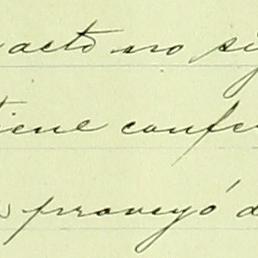 acto no si
tiene confe
s proveyó d